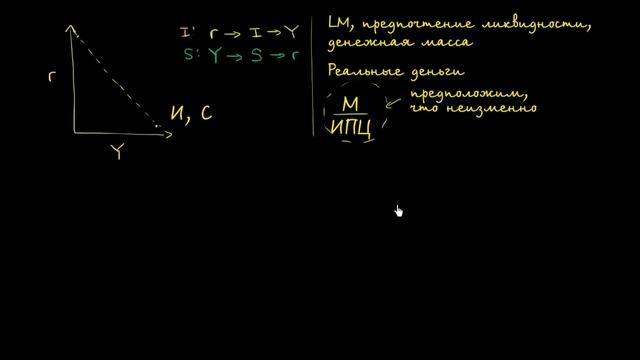 r
Y
И, С
I: r → I → Y
S: Y → S → r
LM, предпочтение ликвидности,
денежная масса
Реальные деньги
М
ИПЦ
предположим,
что неизменно